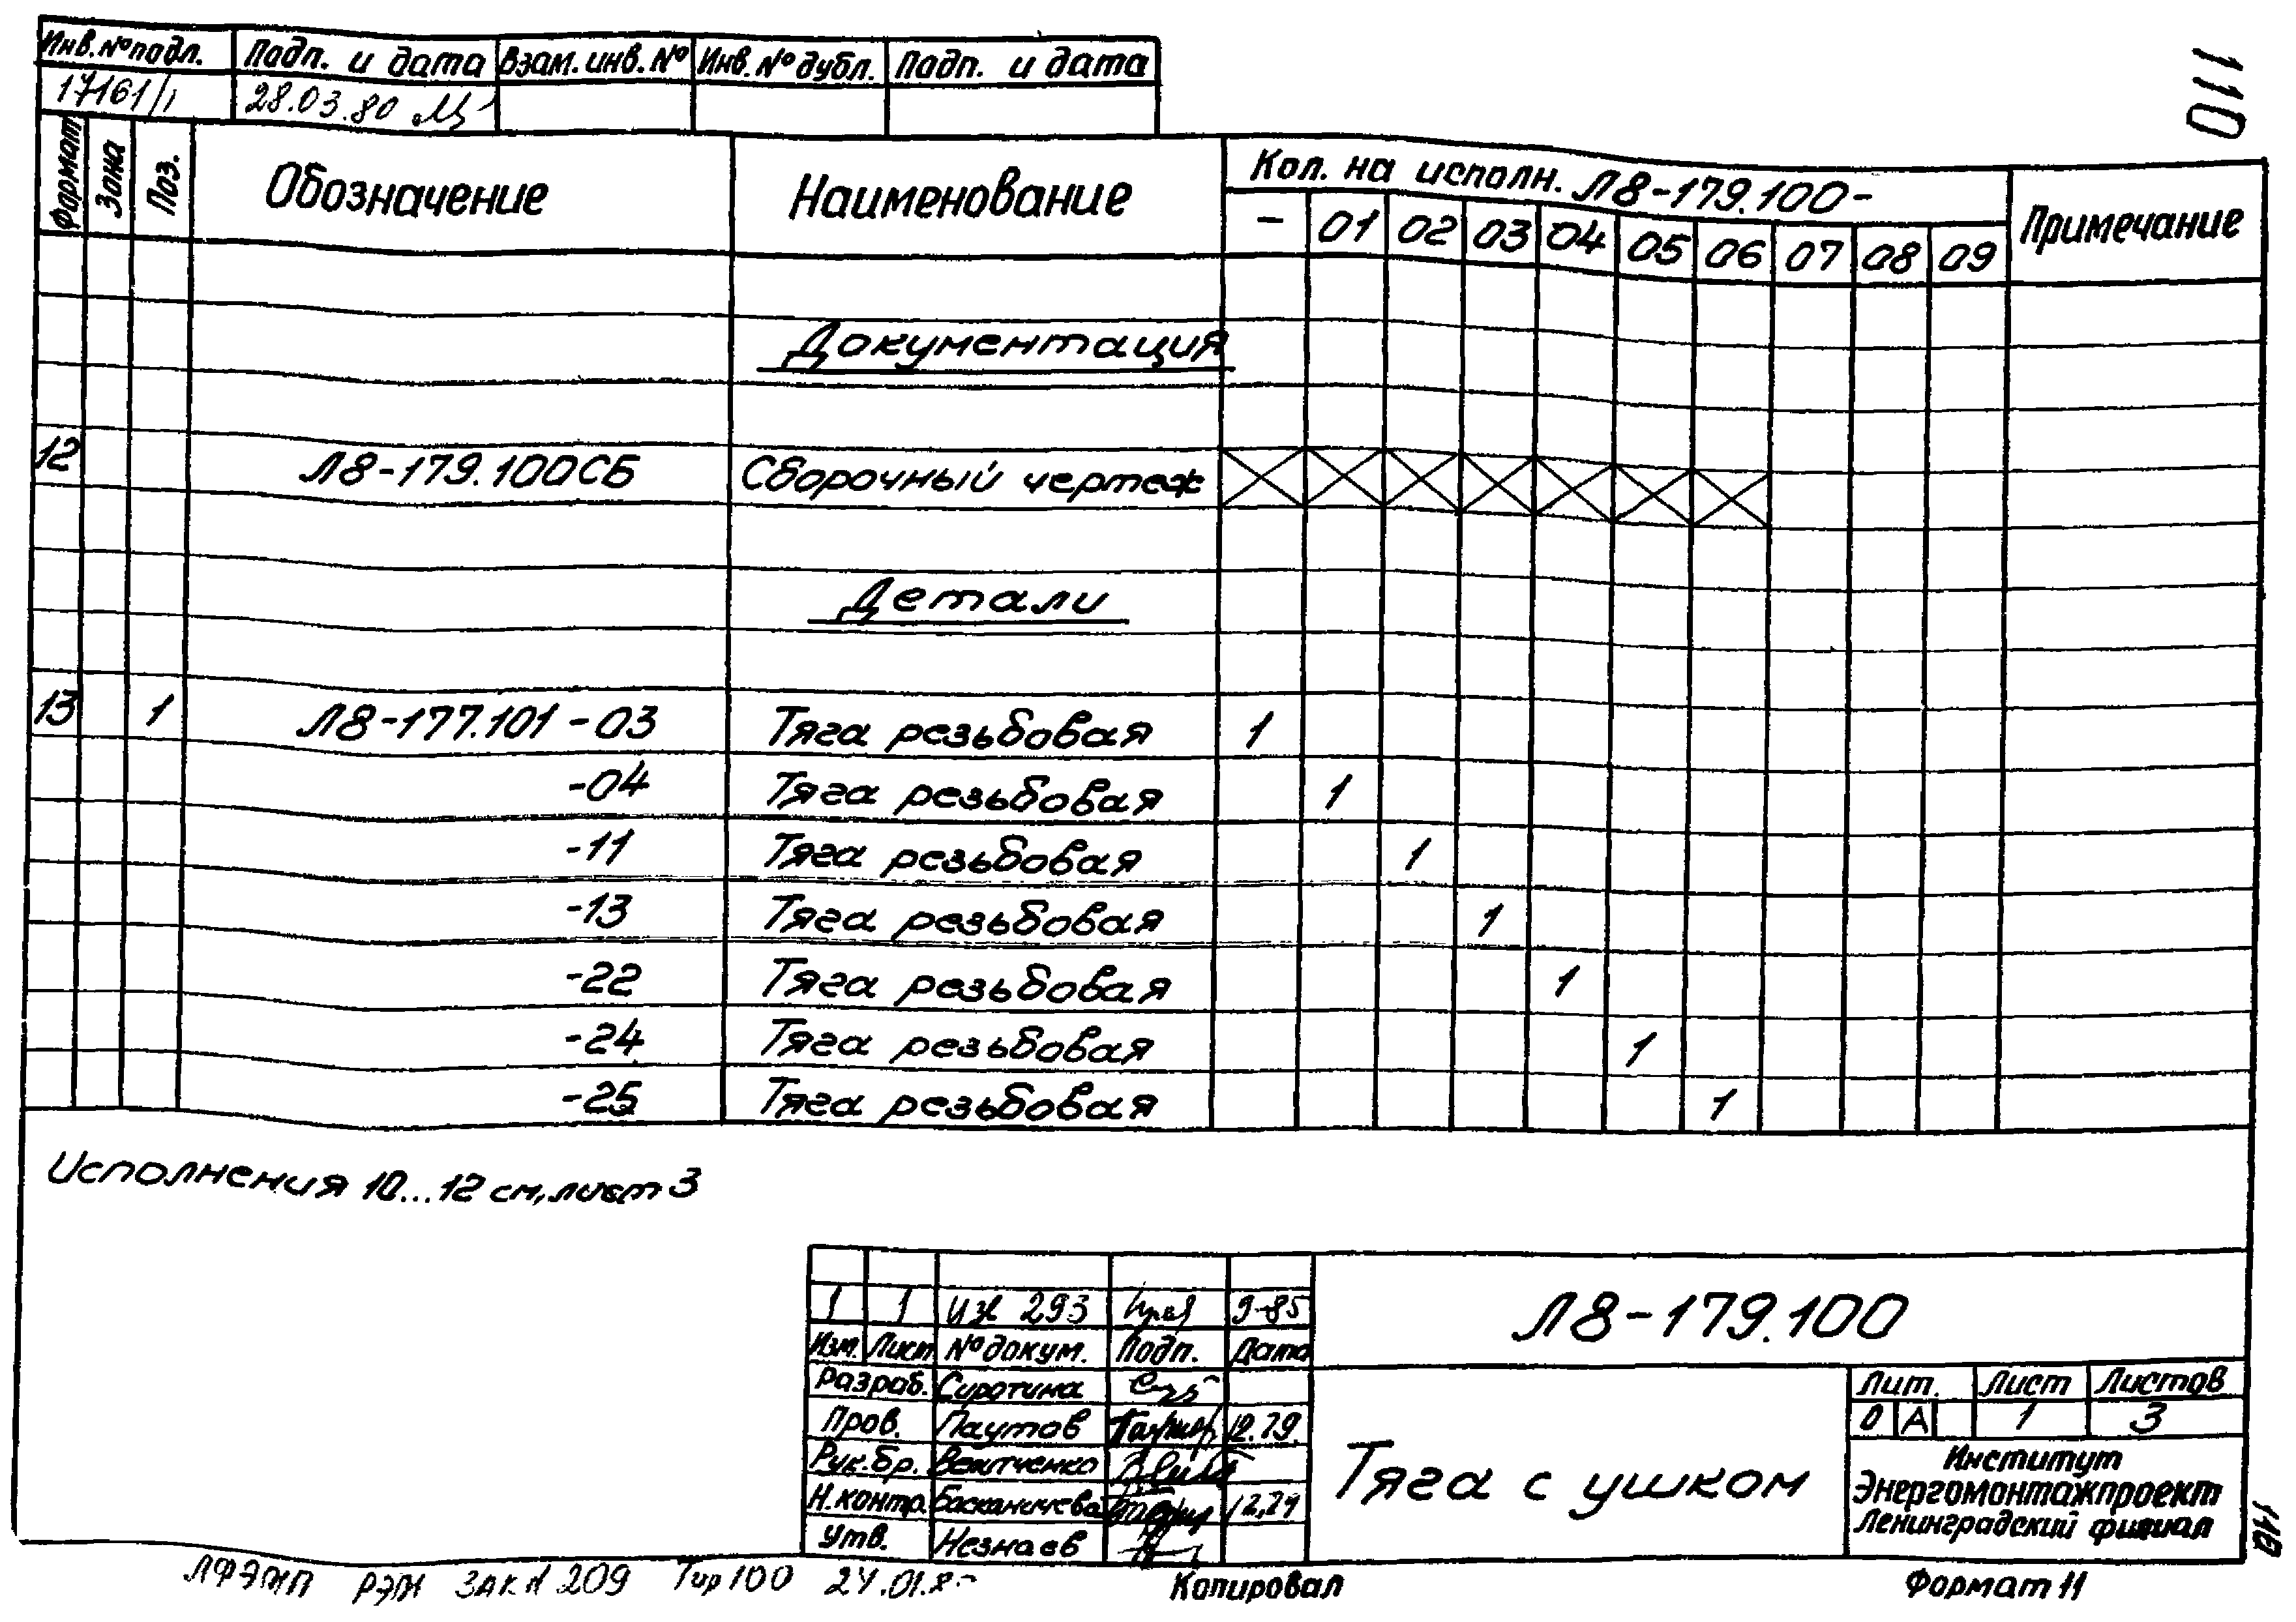 110
Инв. № подл. Подп. и дата Взам. инв. № Инв. № дубл. Подп. и дата
17161/1 28.03.80
Формат Зона Поз. Обозначение Наименование Кол. на исполн. Л8-179.100- Примечание
- 01 02 03 04 05 06 07 08 09
Документация
12 Л8-179.100СБ Сборочный чертеж
Детали
13 1 Л8-177.101-03 Тяга резьбовая 1
-04 Тяга резьбовая 1
-11 Тяга резьбовая 1
-13 Тяга резьбовая 1
-22 Тяга резьбовая 1
-24 Тяга резьбовая 1
-25 Тяга резьбовая 1
Исполнения 10...12 см, лист 3
1 1 Изв 293 9-85
Изм. Лист № докум. Подп. Дата
Разраб. Сиротина
Пров. Паутов 12.79.
Рук. бр.
Н. контр. 12,79
Утв. Незнаев
Л8-179.100
Тяга с ушком
Лит. Лист Листов
0 А 1 3
Институт
Энергомонтажпроект
Ленинградский филиал
110
ЛФЭМП РЭМ Зак N 209 Тир 100 24.01.8
Копировал
Формат 11